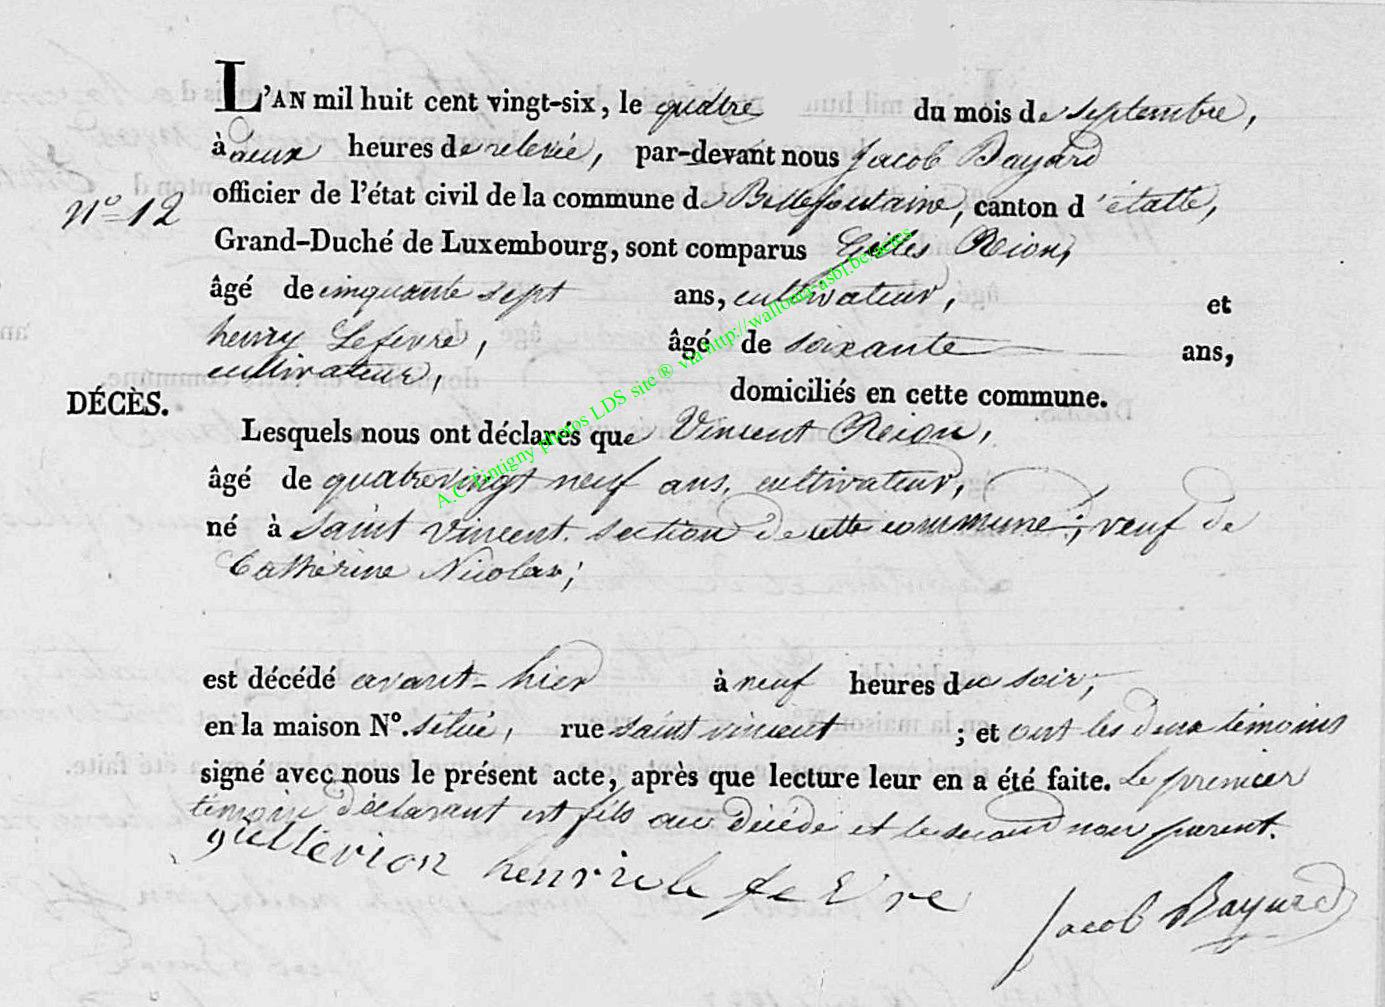 L'AN mil huit cent vingt-six, le quatre du mois de septembre,
à deux heures de relevée, par-devant nous Jacob Bayard
officier de l'état civil de la commune de Bellefontaine, canton d'étalle,
N° 12
Grand-Duché de Luxembourg, sont comparus Gilles Reion,
âgé de cinquante sept ans, cultivateur, et
henry Lefevre, âgé de soixante ans,
cultivateur,
domiciliés en cette commune.
DÉCÈS.
Lesquels nous ont déclarés que Vincent Reion,
âgé de quatrevingt neuf ans, cultivateur,
né à Saint Vincent section de cette commune; veuf de
Catherine Nicolas;
est décédé avant-hier à neuf heures du soir;
en la maison N°. située, rue saint vincent ; et ont les deux témoins
signé avec nous le présent acte, après que lecture leur en a été faite. Le premier
témoin déclarant est fils au décédé et le second non parent.
henri le feevre
Jacob Bayard
A.C. Tintigny photos LDS site ® via http://wallonia-asbl.be/actes